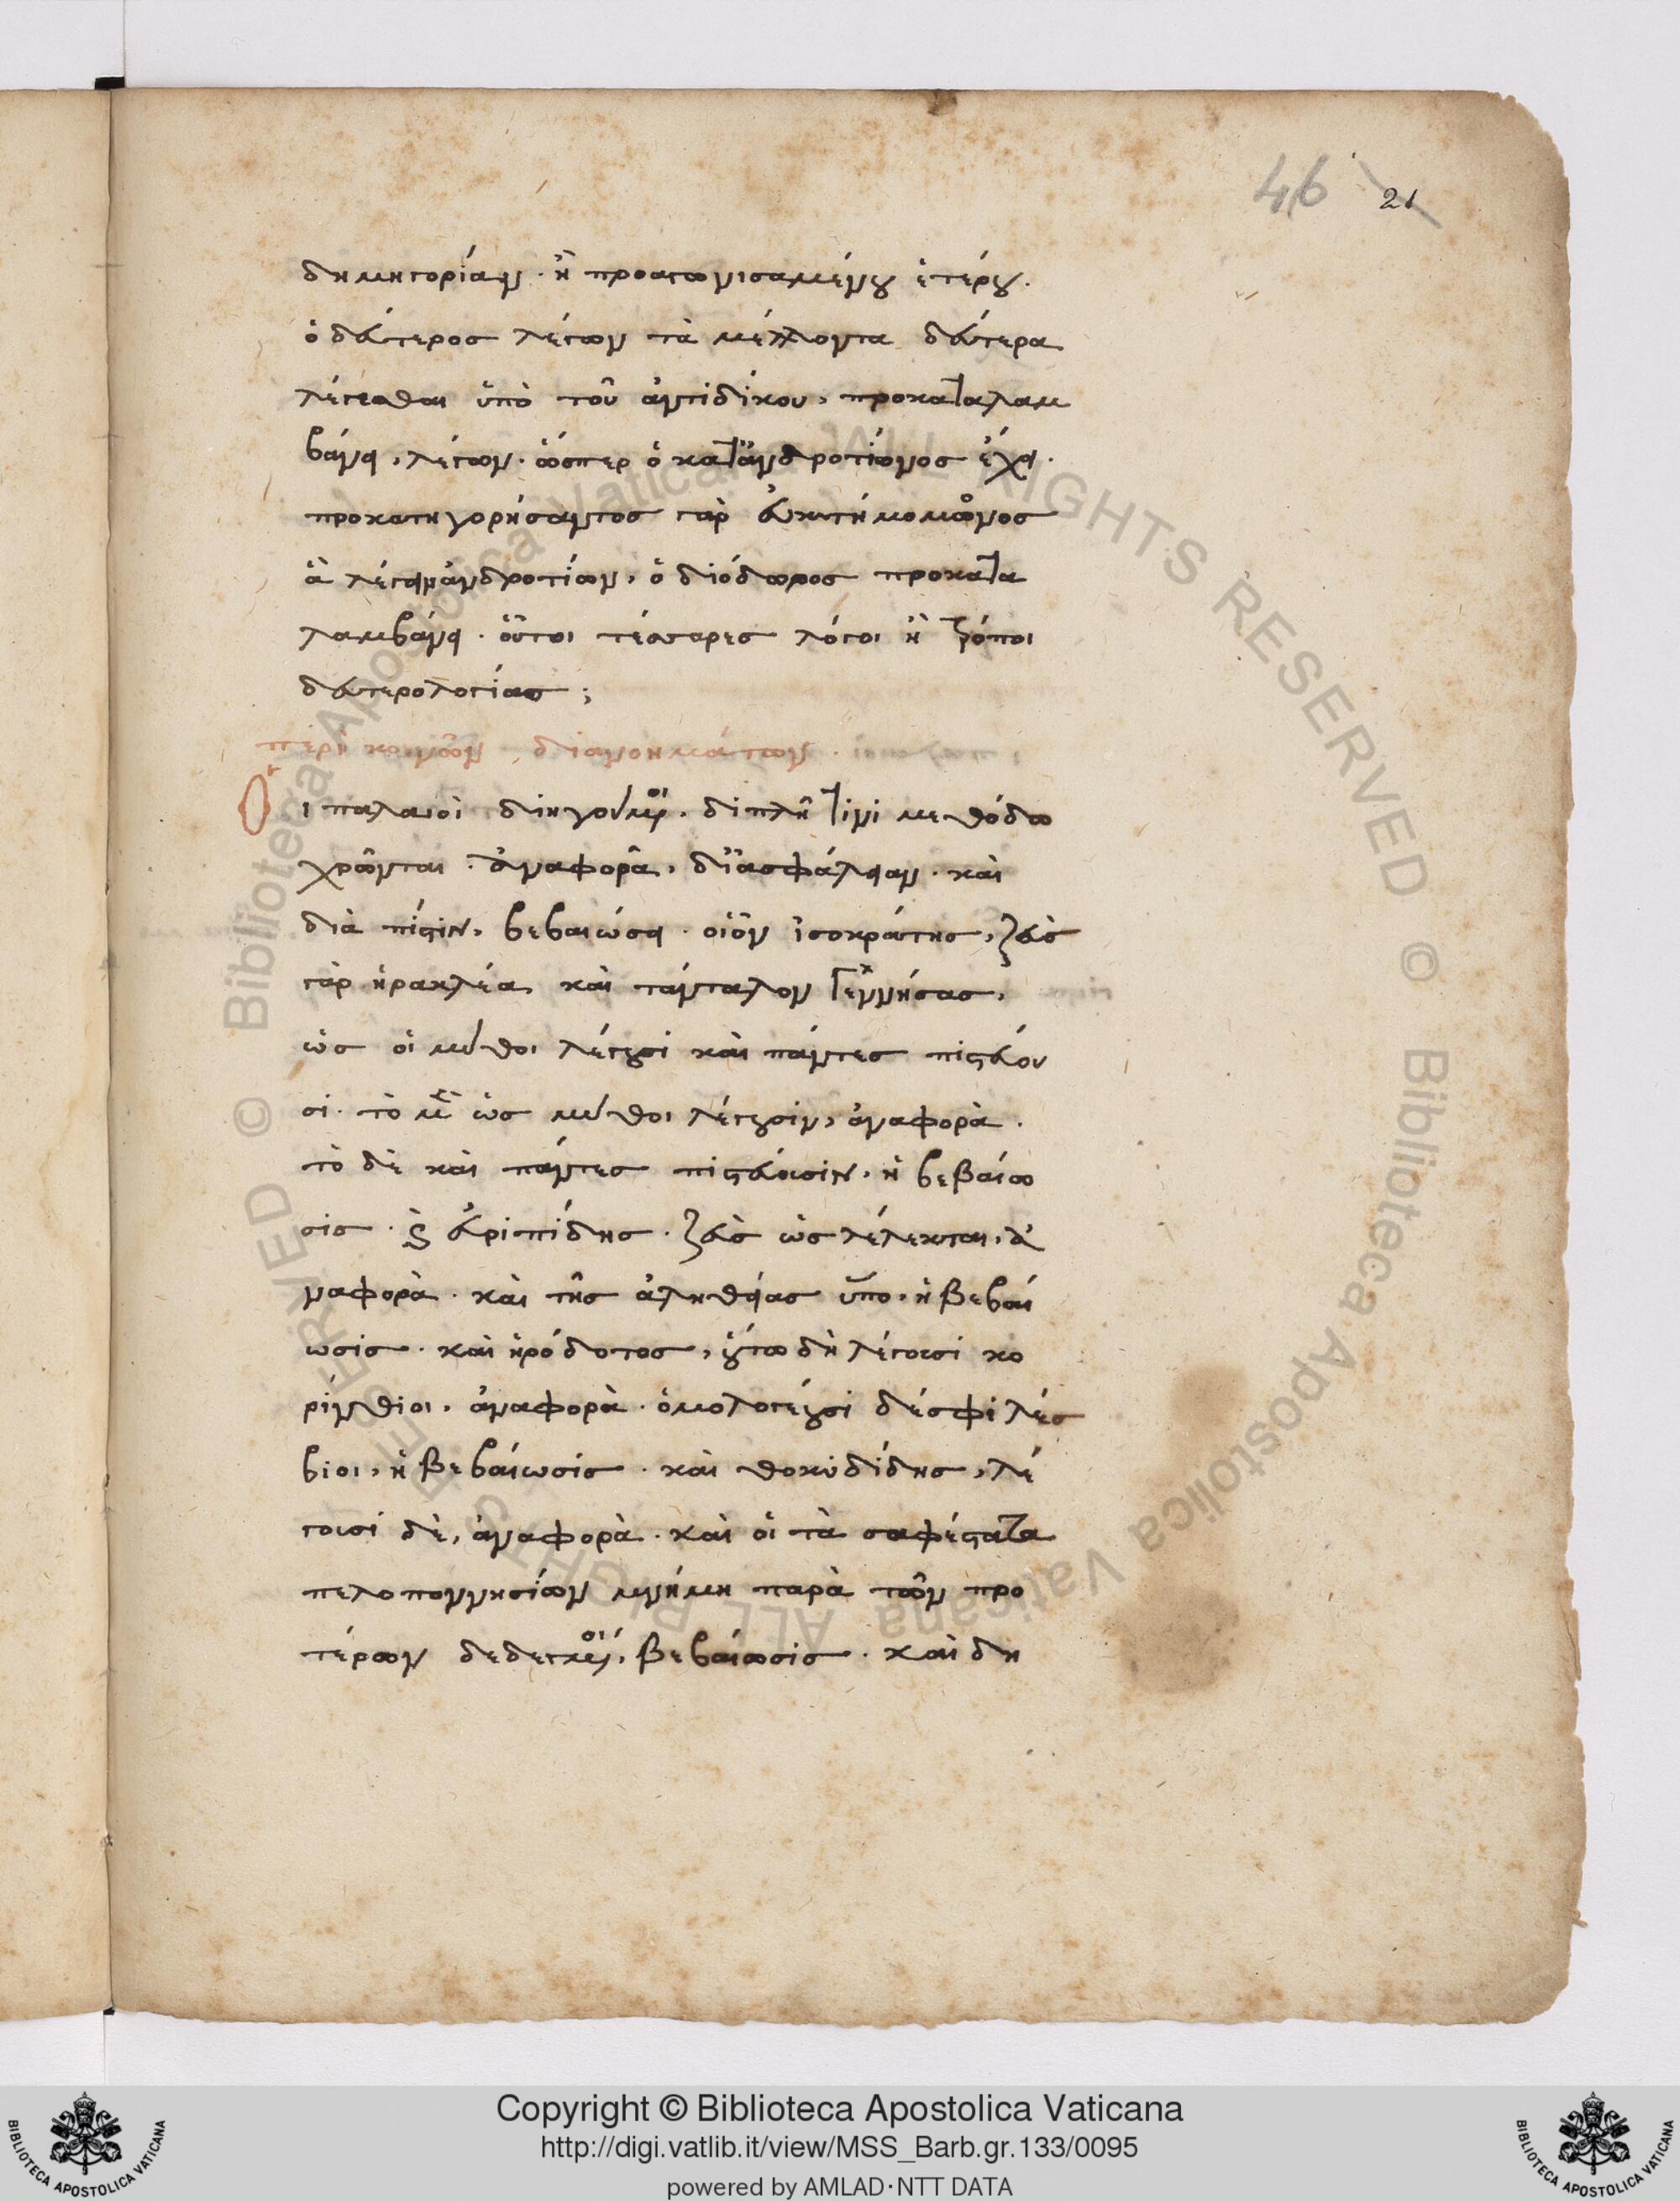 46 21
δημηγορίαν. ἢ προαγωνισαμένου ἑτέρου.
ὁ δεύτερος λέγων τὰ μέλλοντα δεύτερα
λέγεσθαι ὑπὸ τοῦ ἀντιδίκου, προκαταλαμ
βάνει, λέγων. ὥσπερ ὁ κατἀνδροτίωνος ἔχει.
προκατηγορήσαντος γὰρ εὐκτήμονος
ἃ λέγειν ἀνδροτίων, ὁ διόδωρος προκατα
λαμβάνει. οὗτοι τέσσαρες λόγοι ἢ τρόποι
δευτερολογίας;
περὶ κοινῶν διανοημάτων.
Οἱ παλαιοὶ διηγούμενοι. διπλῆ τινὶ μεθόδω
χρῶνται. ἀναφορᾶ, δι' ἀσφάλειαν. καὶ
διὰ πίστιν, βεβαιώσει. οἷον ἰσοκράτης, ζεὺς
γὰρ ἡρακλέα καὶ τάνταλον γεννήσας,
ὡς οἱ μῦθοι λέγουσι καὶ πάντες πιστεύου
σι. τὸ μὲν ὡς μῦθοι λέγουσιν, ἀναφορὰ.
τὸ δὲ καὶ πάντες πιστεύουσιν, ἡ βεβαίω
σις. καὶ εὐριπίδης. ζεὺς ὡς λέλεκται, ἀ
ναφορὰ. καὶ τῆς ἀληθείας ὕπο, ἡ βεβαί
ωσις. καὶ ἡρόδοτος, οὕτω δὴ λέγουσι κο
ρίνθιοι, ἀναφορὰ. ὁμολογέουσι δέ σφι λέσ
βιοι, ἡ βεβαίωσις. καὶ θουκυδίδης, λέ
γουσι δὲ, ἀναφορὰ. καὶ οἱ τὰ σαφέστατα
πελοποννησίων μνήμη παρὰ τῶν προ
τέρων δεδεγμένοι, βεβαίωσις. καὶ δη
Copyright © Biblioteca Apostolica Vaticana
http://digi.vatlib.it/view/MSS_Barb.gr.133/0095
powered by AMLAD·NTT DATA